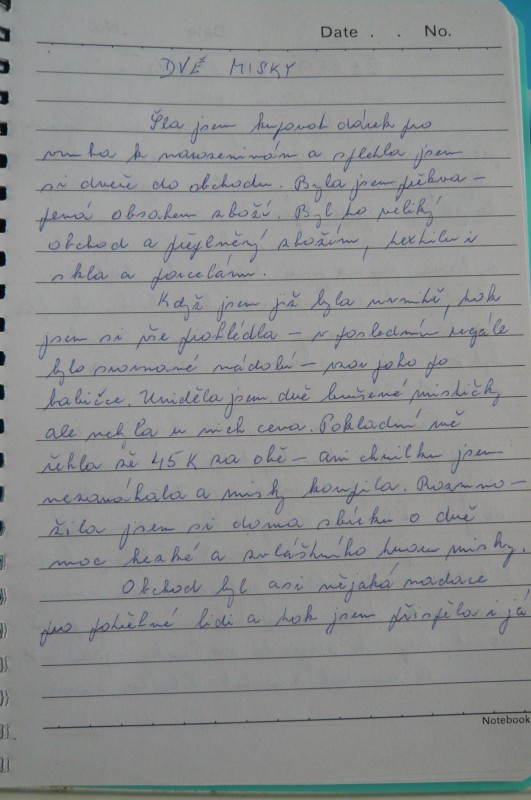 Date . . No.
DVĚ MISKY
Šla jsem kupovat dárek pro
vnuka k narozeninám a spletla jsem
si dveře do obchodu. Byla jsem překva-
pená obsahem zboží. Byl to veliký
obchod a přeplněný zbožím, textilu i
skla a porcelánu.
Když jsem již byla uvnitř, tak
jsem si vše prohlédla – v posledním regále
bylo srovnané nádobí – vzor jako po
babičce. Uviděla jsem dvě broušené mističky
ale nebyla u nich cena. Pokladní mě
řekla že 45 K za obě – ani chvilku jsem
nezaváhala a misky koupila. Rozmno-
žila jsem si doma sbírku o dvě
moc hezké a zvláštního tvaru misky.
Obchod byl asi nějaká nadace
pro potřebné lidi a tak jsem přispěla i já
Notebook